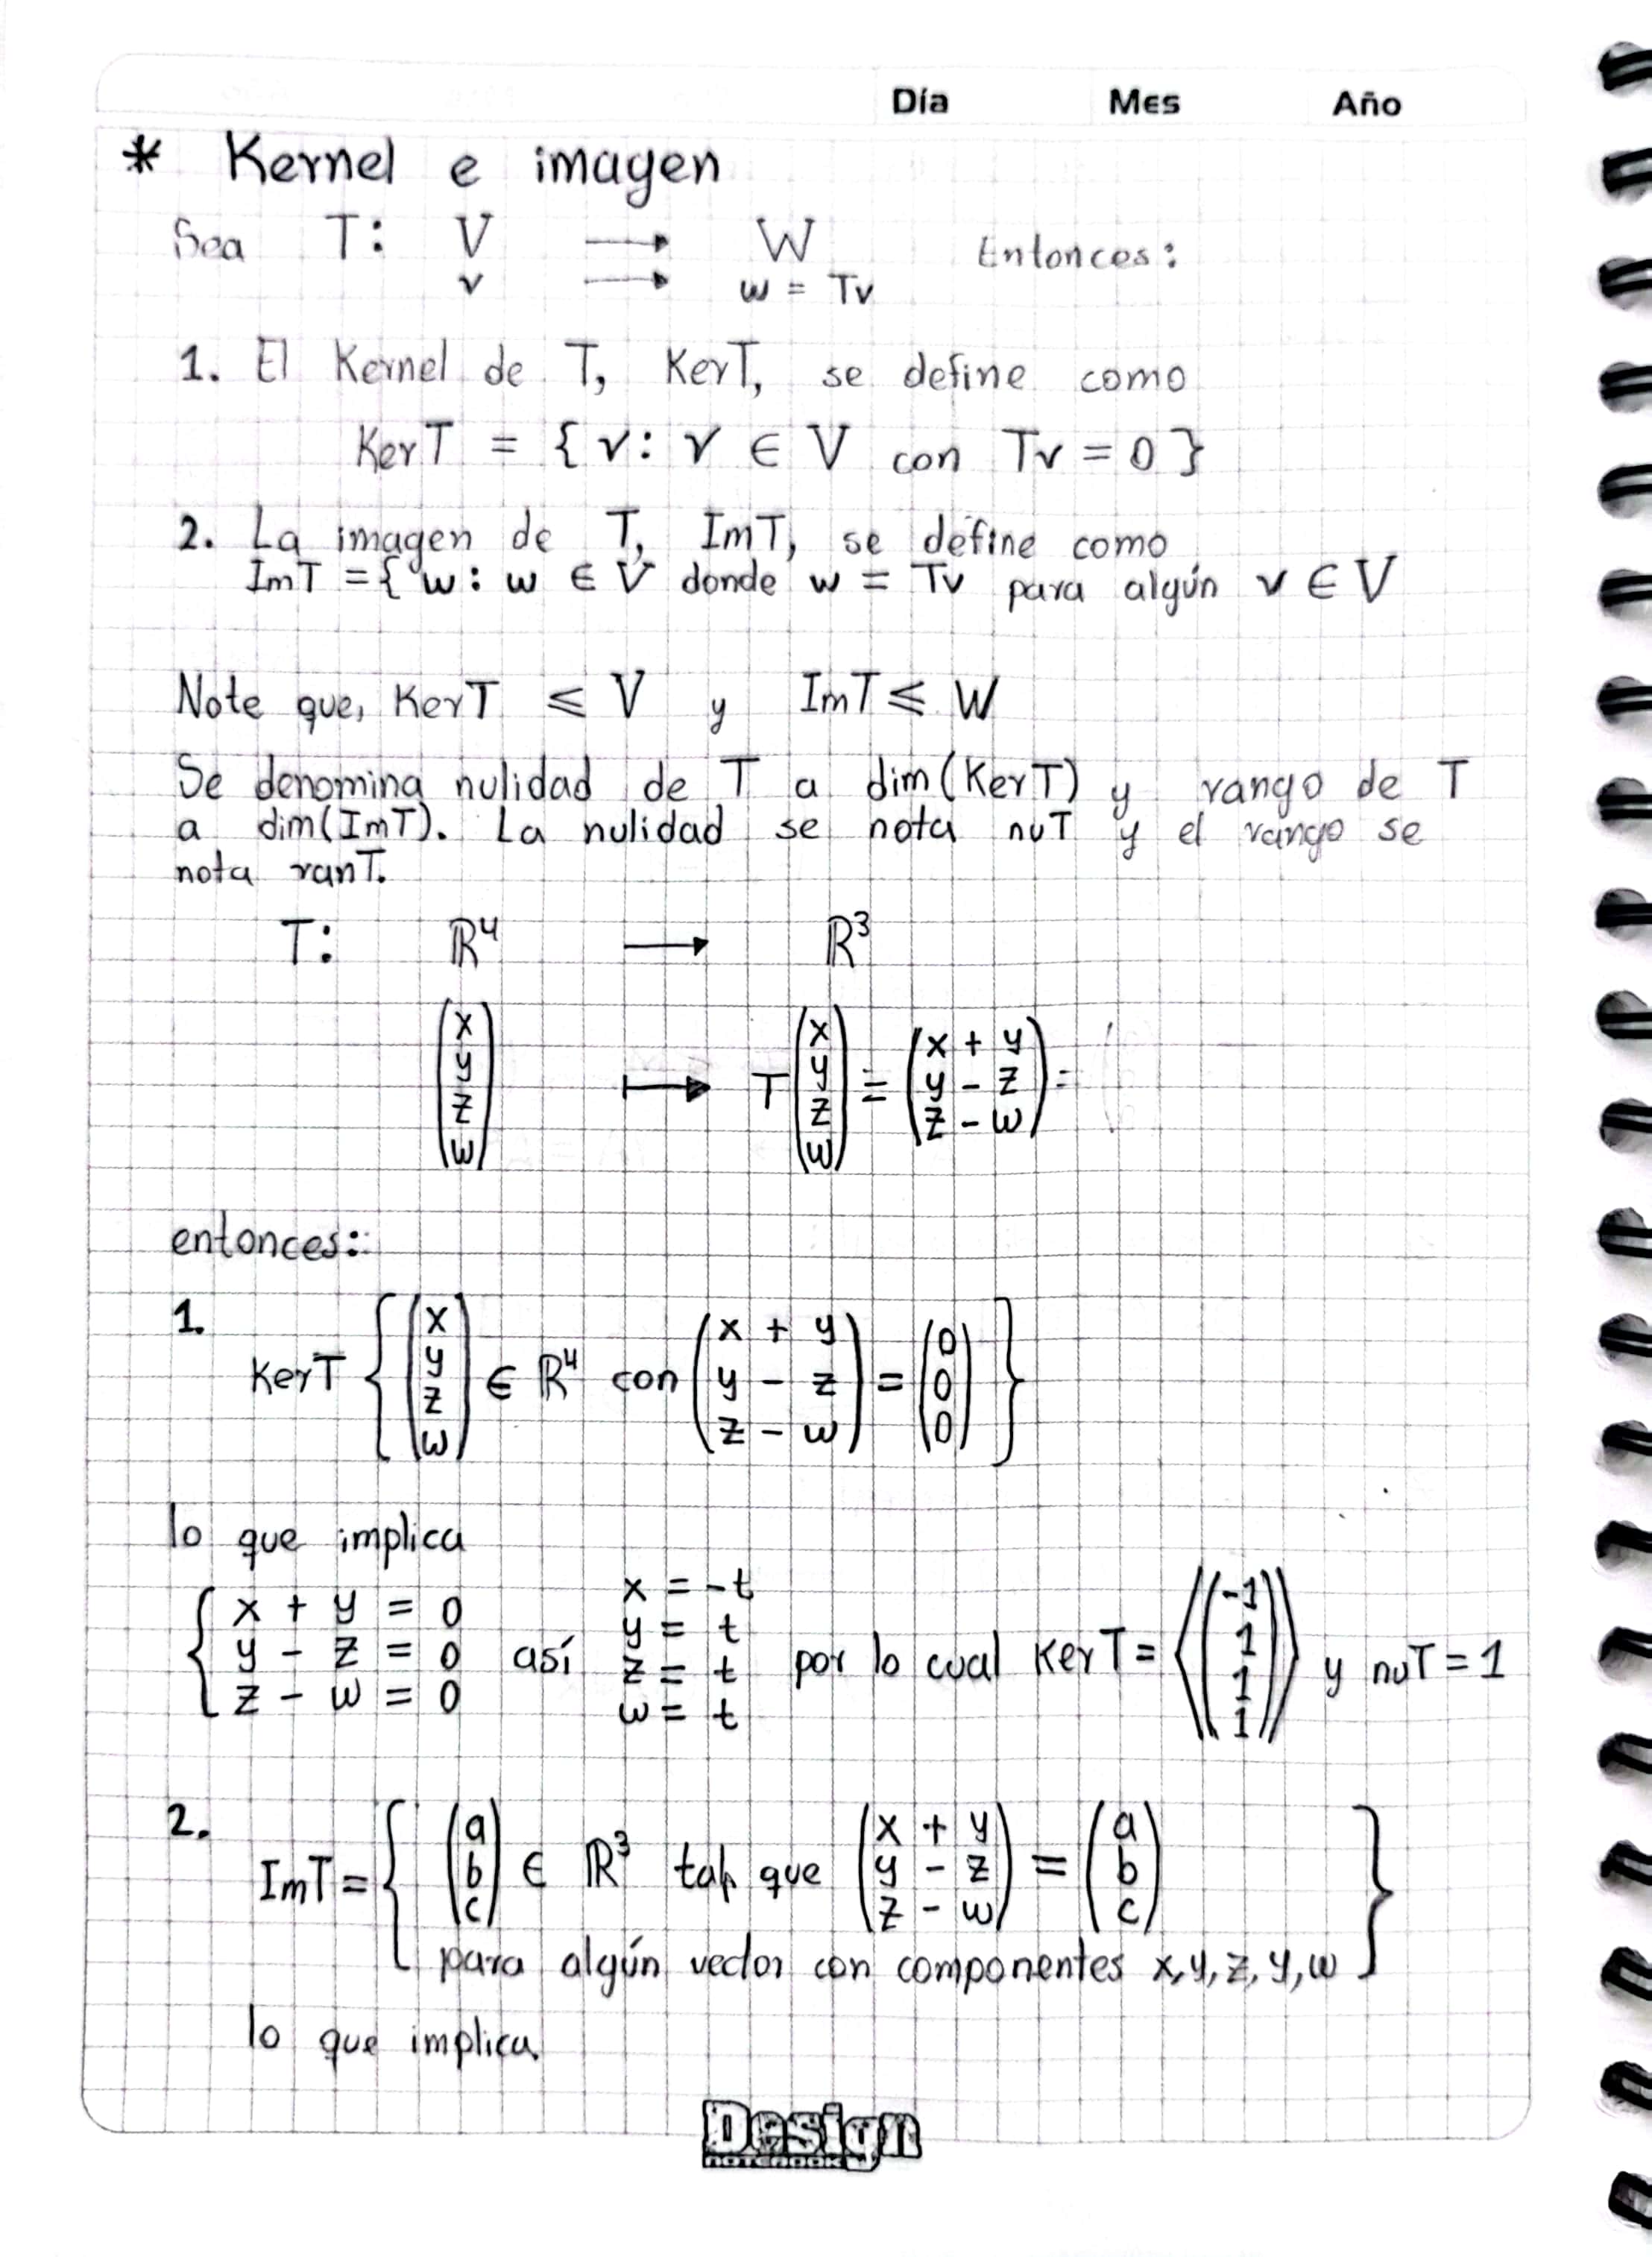 Día Mes Año
* Kernel e imagen
Sea T: V ⟶ W Entonces:
v ⟶ w = Tv
1. El Kernel de T, KerT, se define como
KerT = { v: v ∈ V con Tv = 0 }
2. La imagen de T, ImT, se define como
ImT = { w: w ∈ V donde w = Tv para algún v ∈ V
Note que, KerT ⩽ V y ImT ⩽ W
Se denomina nulidad de T a dim(KerT) y rango de T
a dim(ImT). La nulidad se nota nuT y el rango se
nota ranT.
T: ℝ⁴ ⟶ ℝ³
(x y z w) ⟼ T (x y z w) = (x + y y - z z - w) =
entonces:
1.
KerT { (x y z w) ∈ ℝ⁴ con (x + y y - z z - w) = (0 0 0) }
lo que implica
{ x + y = 0 y - z = 0 z - w = 0 así x = -t y = t z = t w = t por lo cual KerT = ⟨(-1 1 1 1)⟩ y nuT = 1
2.
ImT = { (a b c) ∈ ℝ³ tal que (x + y y - z z - w) = (a b c)
para algún vector con componentes x, y, z, y, w }
lo que implica
Design
NOTEBOOK